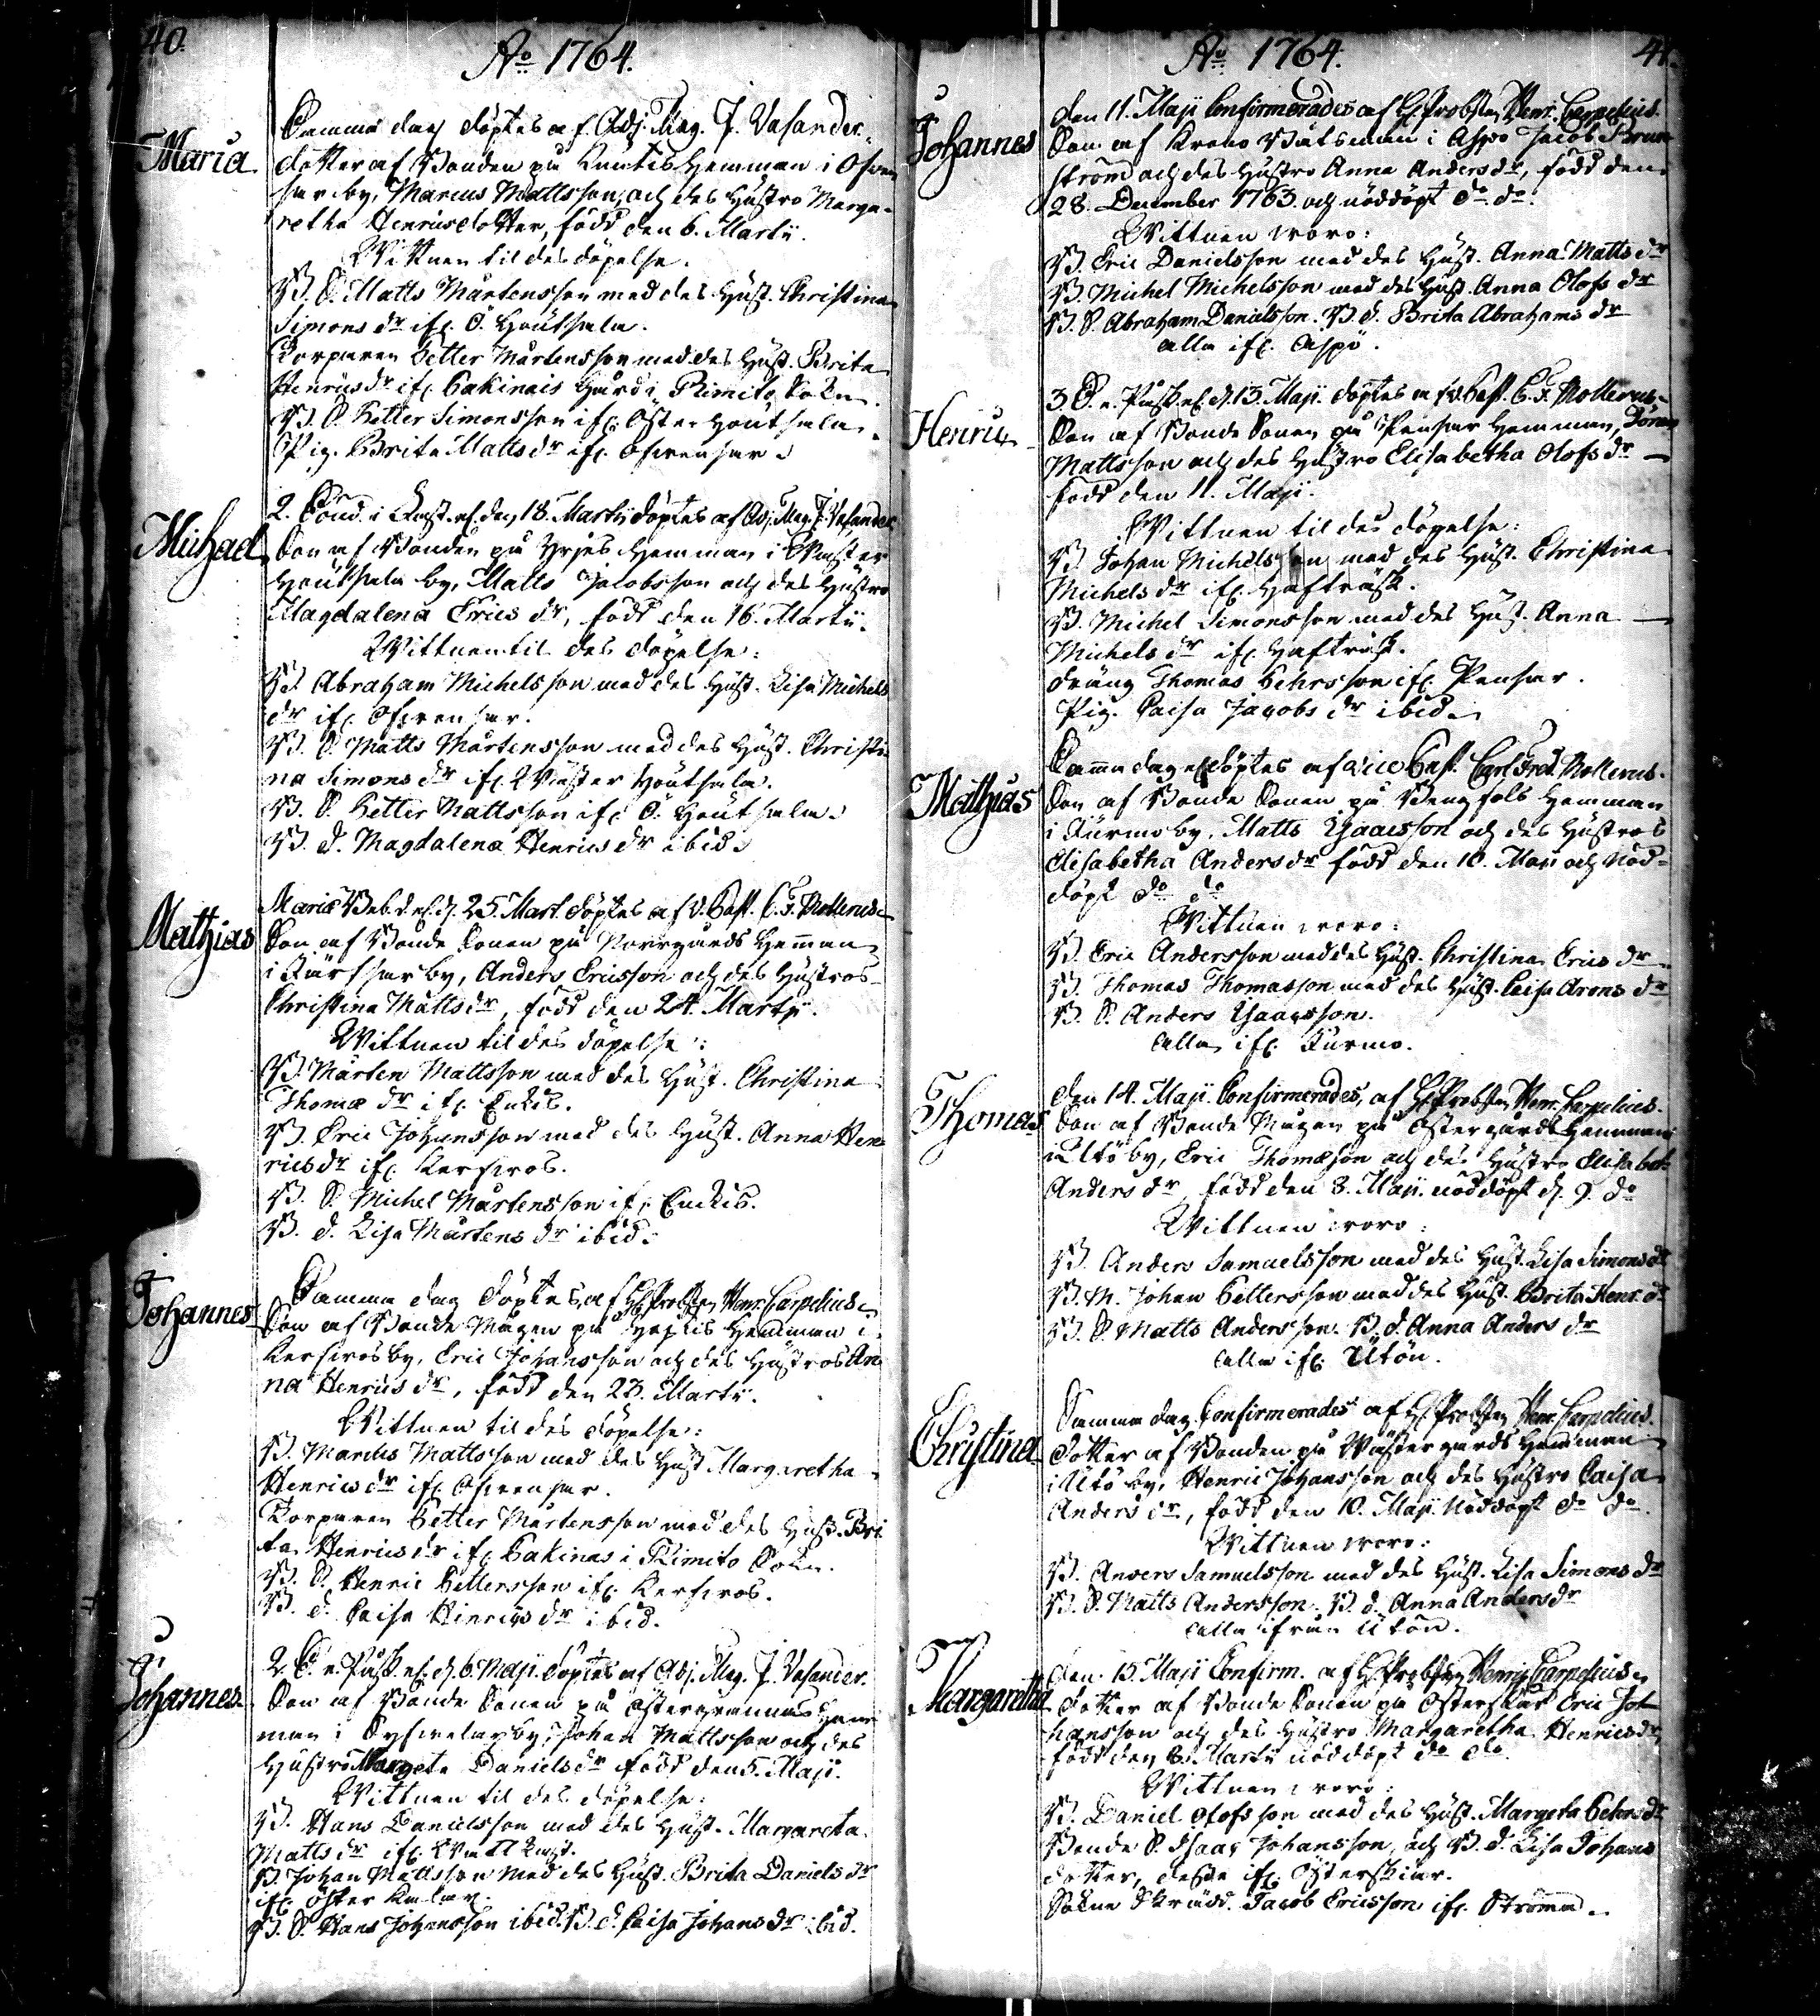 40.
Aº 1764.
Maria
Samma dag döptes af Adj. Mag. J. Vasander.
dotter af Bonden på Knutis Hemman i Ofven
sar by, Marcus Mattsson, och des Hustro Marga-
retha Henricsdotter, född den 6. Martii.
Wittnen til des döpelse.
B. S. Matts Mårtensson med des Hust. Christina
Simons dr ifr. Ö. Houtsala.
Torparen Petter Mårtensson med des Hust. Brita
Henrics dr ifr. Pakinais Gård i Rimito Sokn.
B. S. Petter Simonsson ifr. Öster Houtsala.
Pig. Brita Matts dr ifr. Ofvensar.
Michael
2. Sönd. i Fast. el. den 18. Martii döptes af Adj. Mag. J. Vasander
Son af Bonden på Yrjes Hemman i Wäster
Houtsala by, Matts Jacobsson och des Hustro
Magdalena Erics dr, född den 16. Martii.
Wittnen til des döpelse:
B. Abraham Michelsson med des Hust. Lisa Michels
dr ifr. Ofvensar.
B. S. Matts Mårtensson med des Hust. Christi-
na Simons dr ifr. Wäster Houtsala.
B. S. Petter Mattsson ifr. Ö. Houtsala.
B. d. Magdalena Henrics dr ibid.
Mathias
Mariæ Beb. d. el. d. 25. Mart. döptes af V. Past. C. F. Mollerus
Son af Bonde Sonen på Norrgårds Hemman
i by, Anders Ericsson och des Hustros
Christina Matts dr, född den 24. Martii.
Wittnen til des döpelse:
B. Mårten Mattsson med des Hust. Christina
Thomæ dr ifr. Enkis.
B. Eric Johansson med des Hust. Anna Hen-
rics dr ifr. Kersvos.
B. S. Michel Mårtensson ifr. Enkis.
B. d. Lisa Mårtens dr ibid.
Johannes
Samma dag döptes af H. Probsten Henr. Carpelius
Son af Bonde Mågen på Hemman i
Kersvos by, Eric Johansson och des Hustros An
na Henrics dr, född den 23. Martii.
Wittnen til des döpelse:
B. Marcus Mattsson med des Hust. Margaretha
Henrics dr ifr. Ofvensar.
Torparen Petter Mårtensson med des Hust. Bri
ta Henrics dr ifr. Pakinas i Rimito Sokn.
B. S. Henric Pettersson ifr. Kersvos.
B. d. Caisa Hinrics dr ibid.
Johannes
2. S. e. Påsk. el. d. 6. Maji. döptes af Adj. Mag. J. Vasander.
Son af Bonde Sonen på Östergrannas Hem
man i by, Johan Mattsson och des
Hustro Margeta Daniels dr född den 5. Maji.
Wittnen til des döpelse:
B. Hans Danielsson med des Hust. Margareta
Matts dr ifr.
B. Johan Mattsson med des Hust. Brita Daniels dr
ifr. Öster
B. S. Hans Johansson ibid. B. d. Caisa Johans dr ibid.
Aº 1764.
41.
Johannes
den 11. Maji Confirmerades af H. Probsten Henr. Carpelius.
Son af Krono Båtsman i Aspö Jacob Brun
ström och des Hustro Anna Anders dr, född den
28. December 1763. och nöddöpt do do.
Wittnen woro:
B. Eric Danielsson med des Hust. Anna Matts dr
B. Michel Michelsson med des Hust. Anna Olofs dr
B. S. Abraham Danielsson. B. d. Brita Abrahams dr
alla ifr. Aspö.
Henric
3. S. e. Påsk. el. d. 13. Maji. döptes af V. Past. C. F. Mollerus
Son af Bonde Sonen på Pensar Hemman, Jöran
Mattsson och des Hustro Elisabetha Olofs dr
född den 11. Maji.
Wittnen til des döpelse:
B. Johan Michelsson med des Hust. Christina
Michels dr ifr. Hafträsk.
B. Michel Simonsson med des Hust. Anna
Michels dr ifr. Hafträsk.
dräng Thomas Pehrsson ifr. Pensar.
Pig. Caisa Jacobs dr ibid.
Mathias
Samma dag döptes af Vice Past. Carl Fred. Mollerus.
Son af Bonde Sonen på Bengsols Hemman
i Jurmo by, Matts Isaacsson och des Hustros
Elisabetha Anders dr född den 10. Maji och Nöd-
döpt do do
Wittnen woro:
B. Eric Andersson med des Hust. Christina Erics dr
B. Thomas Thomasson med des Hust. Caisa Arons dr
B. S. Anders Isaacsson.
alla ifr. Jurmo.
Thomas
den 14. Maji. Confirmerades, af H. Probsten Henr. Carpelius.
Son af Bonde Mågen på Östergårds Hemman
i Utö by, Eric Thomæson och des Hustro Elisabet
Anders dr, född den 8. Maji. nöddöpt d. 9. do
Wittnen woro:
B. Anders Samuelsson med des Hust. Lisa Simons dr
B. M. Johan Pettersson med des Hust. Brita Henr. dr
B. S. Matts Andersson. B. d. Anna Anders dr
alla ifr. Utön.
Christina
Samma dag Confirmerades af H. Probsten Henr. Carpelius.
Dotter af Bonden på Wästergårds Hemman
i Utö by, Henric Johansson och des Hustro Caisa
Anders dr, född den 10. Maji. Nöddöpt do do.
Wittnen woro:
B. Anders Samuelsson med des Hust. Lisa Simons dr
B. S. Matts Andersson. B. d. Anna Anders dr
alla ifrån Utön.
Margaretha
den 15. Maji Confirm. af H. Probsten Henric Carpelius
Dotter af Bonde Sonen på Österskär Eric Jo-
hansson och des Hustro Margaretha Henrics dr
född den 8. Martii nöddöpt do do.
Wittnen woro:
B. Daniel Olofsson med des Hust. Margeta Pehrs dr
Bonde S. Isaac Johansson, och B. d. Lisa Johans
dotter, desse ifr. Österskiär.
Sokne Skrädd. Jacob Ericsson ifr. Strömma.